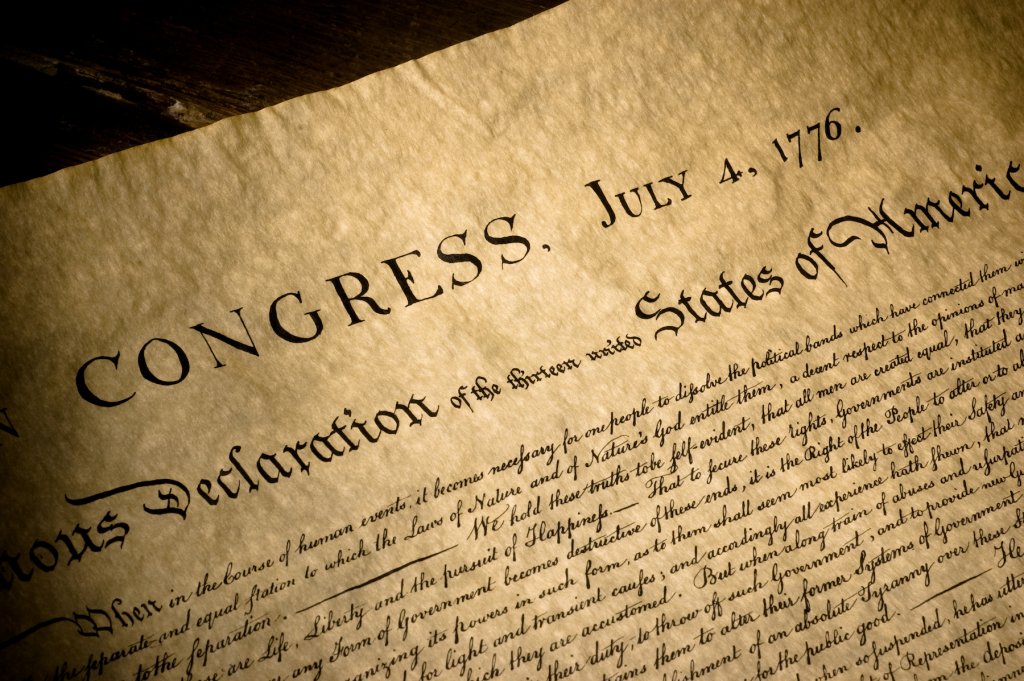 N CONGRESS, JULY 4, 1776.
mous Declaration of the thirteen united States of Americ
When in the Course of human events, it becomes necessary for one people to dissolve the political bands which have connected them w
the separate and equal station to which the Laws of Nature and of Nature's God entitle them, a decent respect to the opinions of ma
to the separation. We hold these truths to be self-evident, that all men are created equal, that they
are Life, Liberty and the pursuit of Happiness.— That to secure these rights, Governments are instituted a
any Form of Government becomes destructive of these ends, it is the Right of the People to alter or to ab
anizing its powers in such form, as to them shall seem most likely to effect their Safety an
for light and transient causes; and accordingly all experience hath shewn, that
which they are accustomed. But when a long train of abuses and usurpat
their duty, to throw off such Government, and to provide new G
trains them to alter their former Systems of Government
blishment of an absolute Tyranny over these
for the public good. He
when so suspended, he has utter
of Representation in
the depos